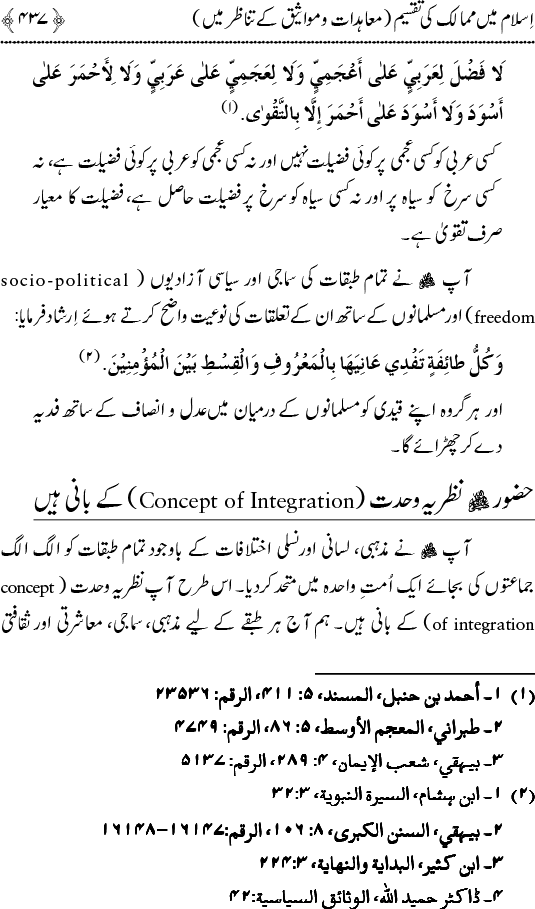 اِسلام میں ممالک کی تقسیم (معاہدات و مواثیق کے تناظر میں) ﴿۴۳۷﴾
لَا فَضْلَ لِعَرَبِيٍّ عَلَى أَعْجَمِيٍّ وَلَا لِعَجَمِيٍّ عَلَى عَرَبِيٍّ وَلَا لِأَحْمَرَ عَلَى
أَسْوَدَ وَلَا أَسْوَدَ عَلَى أَحْمَرَ إِلَّا بِالتَّقْوَى. (۱)
کسی عربی کو کسی عجمی پر کوئی فضیلت نہیں اور نہ کسی عجمی کو عربی پر کوئی فضیلت ہے، نہ
کسی سرخ کو سیاہ پر اور نہ کسی سیاہ کو سرخ پر فضیلت حاصل ہے، فضیلت کا معیار
صرف تقویٰ ہے۔
آپ ﷺ نے تمام طبقات کی سماجی اور سیاسی آزادیوں (socio-political
freedom) اور مسلمانوں کے ساتھ ان کے تعلقات کی نوعیت واضح کرتے ہوئے اِرشاد فرمایا:
وَكُلُّ طَائِفَةٍ تَفْدِي عَانِيَهَا بِالْمَعْرُوفِ وَالْقِسْطِ بَيْنَ الْمُؤْمِنِيْنَ. (۲)
اور ہر گروہ اپنے قیدی کو مسلمانوں کے درمیان میں عدل و انصاف کے ساتھ فدیہ
دے کر چھڑائے گا۔
حضور ﷺ نظریہ وحدت (Concept of Integration) کے بانی ہیں
آپ ﷺ نے مذہبی، لسانی اور نسلی اختلافات کے باوجود تمام طبقات کو الگ الگ
جماعتوں کی بجائے ایک اُمتِ واحدہ میں متحد کر دیا۔ اس طرح آپ نظریہ وحدت (concept
of integration) کے بانی ہیں۔ ہم آج ہر طبقے کے لیے مذہبی، سماجی، معاشرتی اور ثقافتی
(۱) ۱۔ أحمد بن حنبل، المسند، ۵: ۴۱۱، الرقم: ۲۳۵۳۶
۲۔ طبراني، المعجم الأوسط، ۵: ۸۶، الرقم: ۴۷۴۹
۳۔ بيهقي، شعب الإيمان، ۴: ۲۸۹، الرقم: ۵۱۳۷
(۲) ۱۔ ابن هشام، السيرة النبوية، ۳: ۳۲
۲۔ بيهقي، السنن الكبرى، ۸: ۱۰۶، الرقم: ۱۶۱۴۷-۱۶۱۴۸
۳۔ ابن كثير، البداية والنهاية، ۳: ۲۲۴
۴۔ ڈاکٹر حمید اللہ، الوثائق السياسية: ۴۲